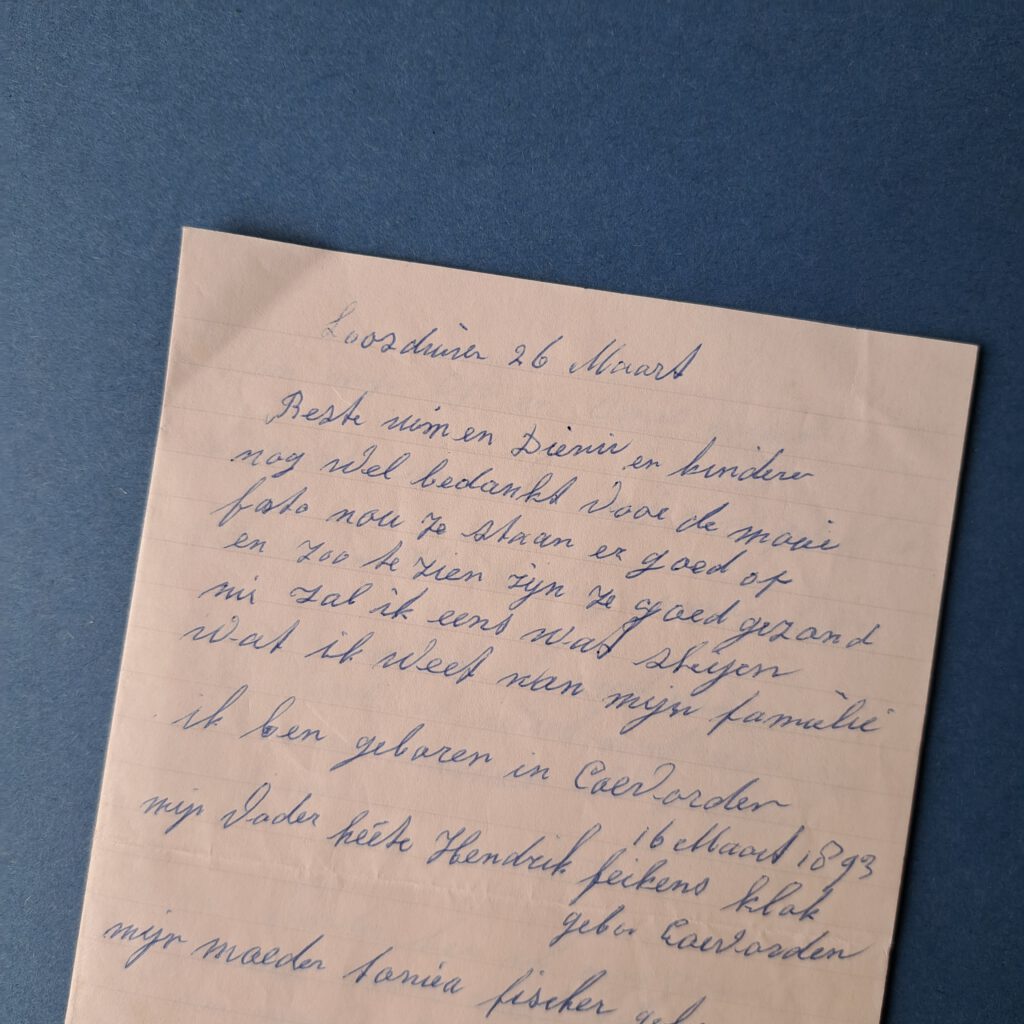 Loosduinen 26 Maart
Beste wim en Dienie en kinderen
nog wel bedankt voor de mooie
foto nou ze staan er goed op
en zoo te zien zijn ze goed gezond
nu zal ik eens wat
wat ik weet van mijn familie
ik ben geboren in Coevorden
16 Maart 1893
mijn Vader heete Hendrik feikens klok
gebor Coevorden
mijn moeder fischer